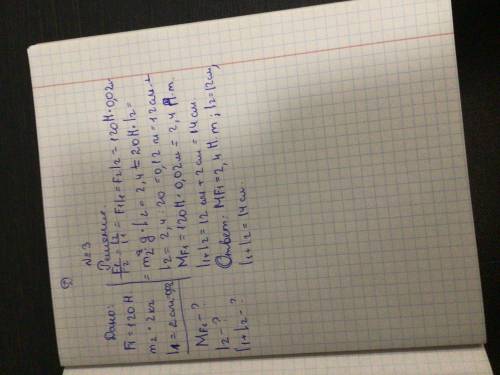 №3
Дано:
F₁ = 120 Н
m₂ = 2 кг
l₁ = 2 см = 0,02
MF₁ - ?
l₂ - ?
l₁ + l₂ - ?
Решение.
F₁/F₂ = l₂/l₁ = F₁l₁ = F₂l₂ = 120 Н · 0,02 м
= m₂ g · l₂ = 2,4 = 20 Н · l₂ =
l₂ = 2,4 : 20 = 0,12 м = 12 см
MF₁ = 120 Н · 0,02 м = 2,4 Н · m.
l₁ + l₂ = 12 см + 2 см = 14 см.
Ответ: MF₁ = 2,4 Н. m ; l₂ = 12 см,
l₁ + l₂ = 14 см